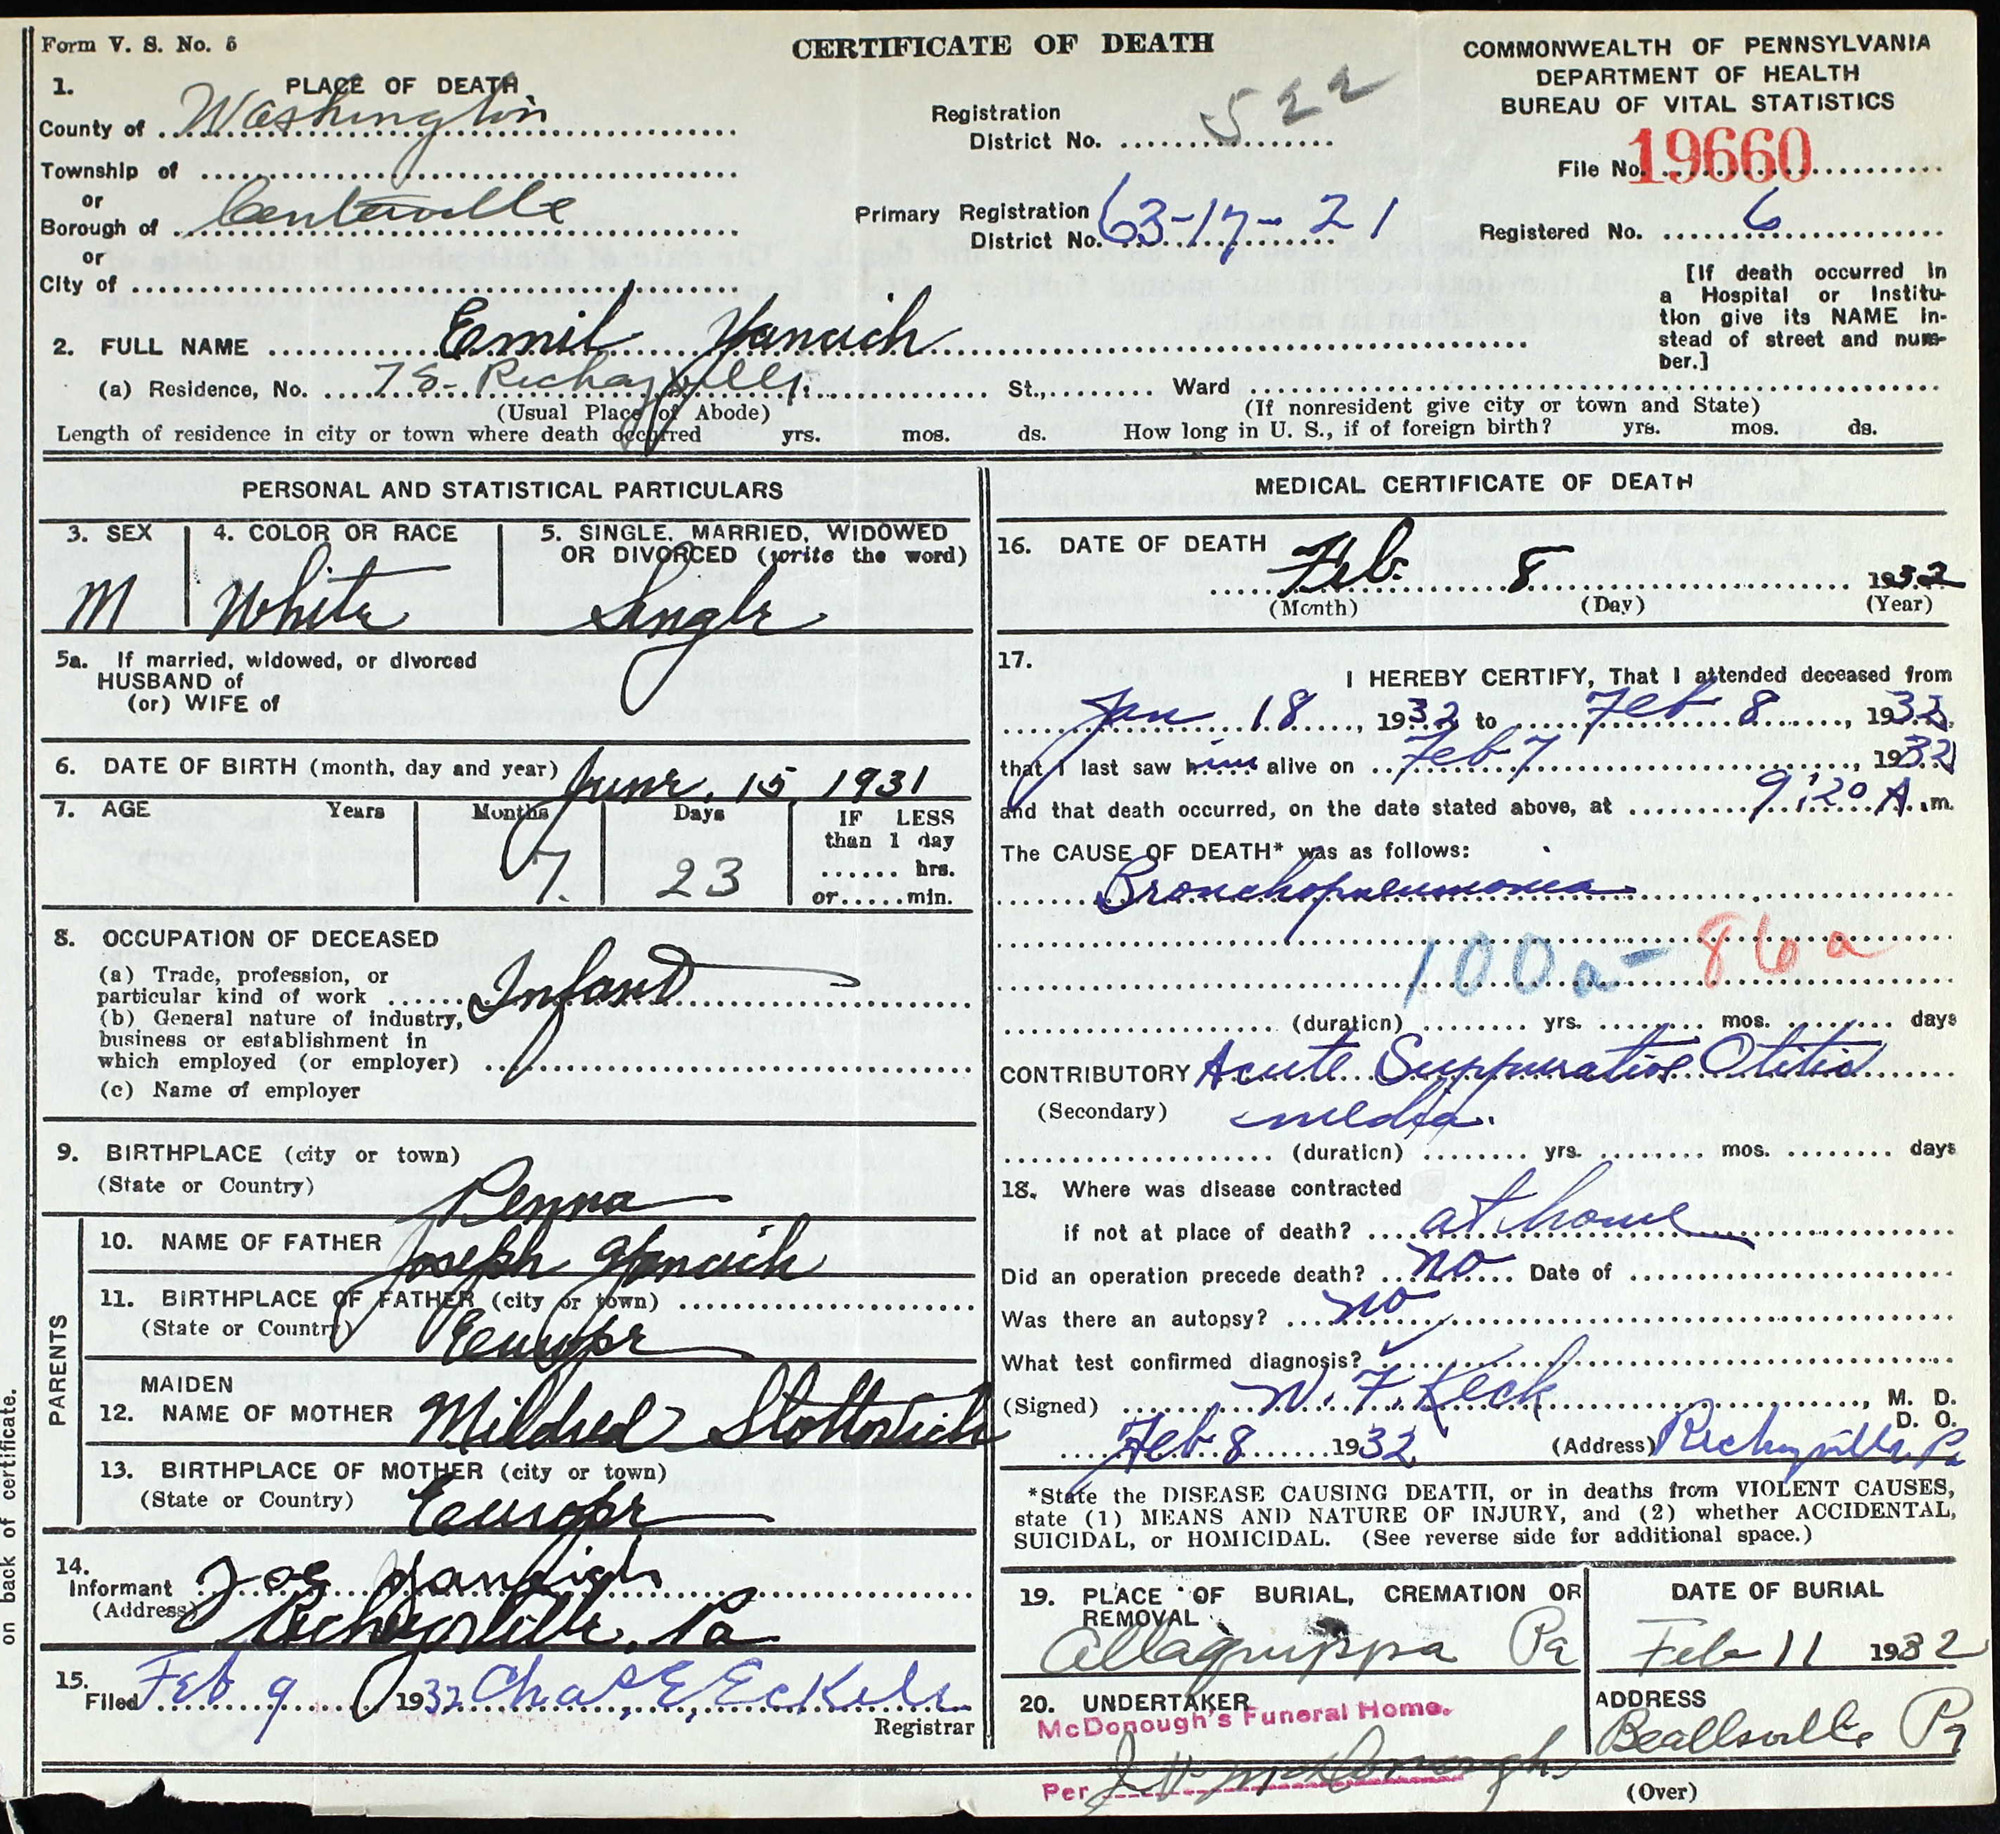 Form V. S. No. 6
CERTIFICATE OF DEATH
COMMONWEALTH OF PENNSYLVANIA
DEPARTMENT OF HEALTH
BUREAU OF VITAL STATISTICS
1. PLACE OF DEATH
County of Washington
Township of
or
Borough of Centerville
or
City of
Registration
District No. 522
Primary Registration
District No. 63-17-21
File No. 19660
Registered No. 6
[If death occurred in
a Hospital or Institu-
tion give its NAME in-
stead of street and num-
ber.]
2. FULL NAME Emil Yancich
(a) Residence, No. 78- Richeyville, St., Ward
(Usual Place of Abode) (If nonresident give city or town and State)
Length of residence in city or town where death occurred yrs. mos. ds. How long in U. S., if of foreign birth? yrs. mos. ds.
PERSONAL AND STATISTICAL PARTICULARS
3. SEX 4. COLOR OR RACE 5. SINGLE, MARRIED, WIDOWED
OR DIVORCED (write the word)
M White Single
5a. If married, widowed, or divorced
HUSBAND of
(or) WIFE of
6. DATE OF BIRTH (month, day and year) June, 15, 1931
7. AGE Years Months Days IF LESS
than 1 day
hrs.
or min.
7. 23
8. OCCUPATION OF DECEASED
(a) Trade, profession, or
particular kind of work Infant
(b) General nature of industry,
business or establishment in
which employed (or employer)
(c) Name of employer
9. BIRTHPLACE (city or town)
(State or Country) Penna
PARENTS
10. NAME OF FATHER Joseph Yancich
11. BIRTHPLACE OF FATHER (city or town)
(State or Country) Europe
MAIDEN
12. NAME OF MOTHER Mildred
13. BIRTHPLACE OF MOTHER (city or town)
(State or Country) Europe
14.
Informant Joe
(Address) Richeyville, Pa
15.
Filed Feb 9 1932 Chas. E. Eckels
Registrar
on back of certificate.
MEDICAL CERTIFICATE OF DEATH
16. DATE OF DEATH Feb. 8 1932
(Month) (Day) (Year)
17.
I HEREBY CERTIFY, That I attended deceased from
Jan 18, 1932 to Feb 8, 1932,
that I last saw him alive on Feb 7, 1932
and that death occurred, on the date stated above, at 9:20 A.m.
The CAUSE OF DEATH* was as follows:
Bronchopneumonia
100a- 86a
(duration) yrs. mos. days
CONTRIBUTORY Acute Suppurative Otitis
(Secondary) media.
(duration) yrs. mos. days
18. Where was disease contracted
if not at place of death? at home
Did an operation precede death? no Date of
Was there an autopsy? no
What test confirmed diagnosis?
(Signed) W. F. Keck, M. D.
D. O.
Feb 8 1932 (Address) Richeyville Pa
*State the DISEASE CAUSING DEATH, or in deaths from VIOLENT CAUSES,
state (1) MEANS AND NATURE OF INJURY, and (2) whether ACCIDENTAL,
SUICIDAL, or HOMICIDAL. (See reverse side for additional space.)
19. PLACE OF BURIAL, CREMATION OR
REMOVAL
Allaquippa Pa
DATE OF BURIAL
Feb 11 1932
20. UNDERTAKER
McDonough's Funeral Home.
Per J. H. McDonough
ADDRESS
Beallsville Pa
(Over)